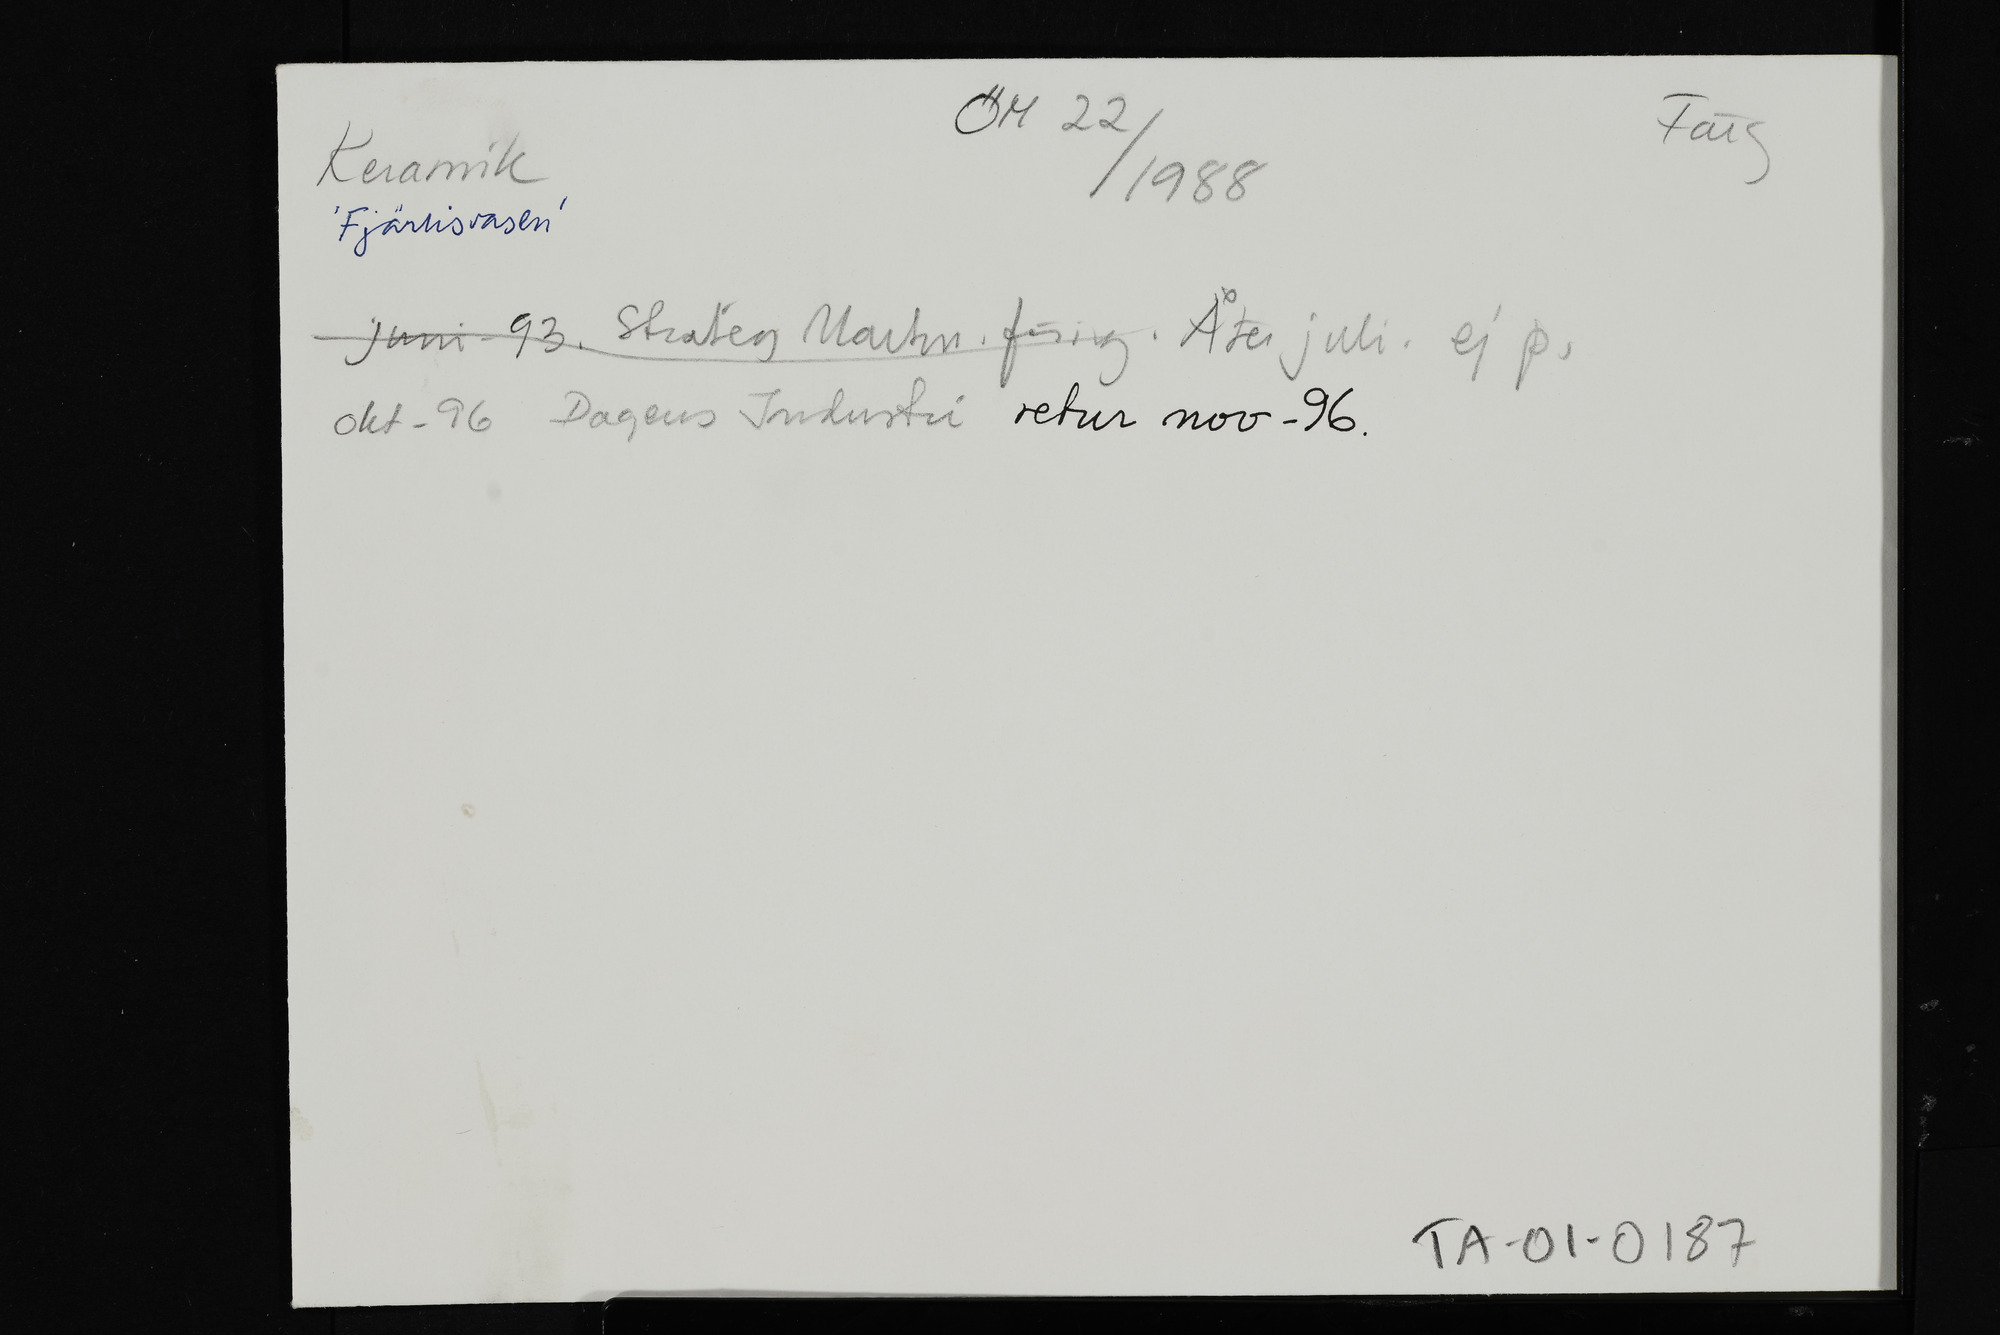 ÖM 22/1988
Färg
Keramik
'Fjärilsvasen'
juni -93. Strateg Markn. föring. Åter juli. ej p.
okt -96 Dagens Industri retur nov -96.
TA-01-0187